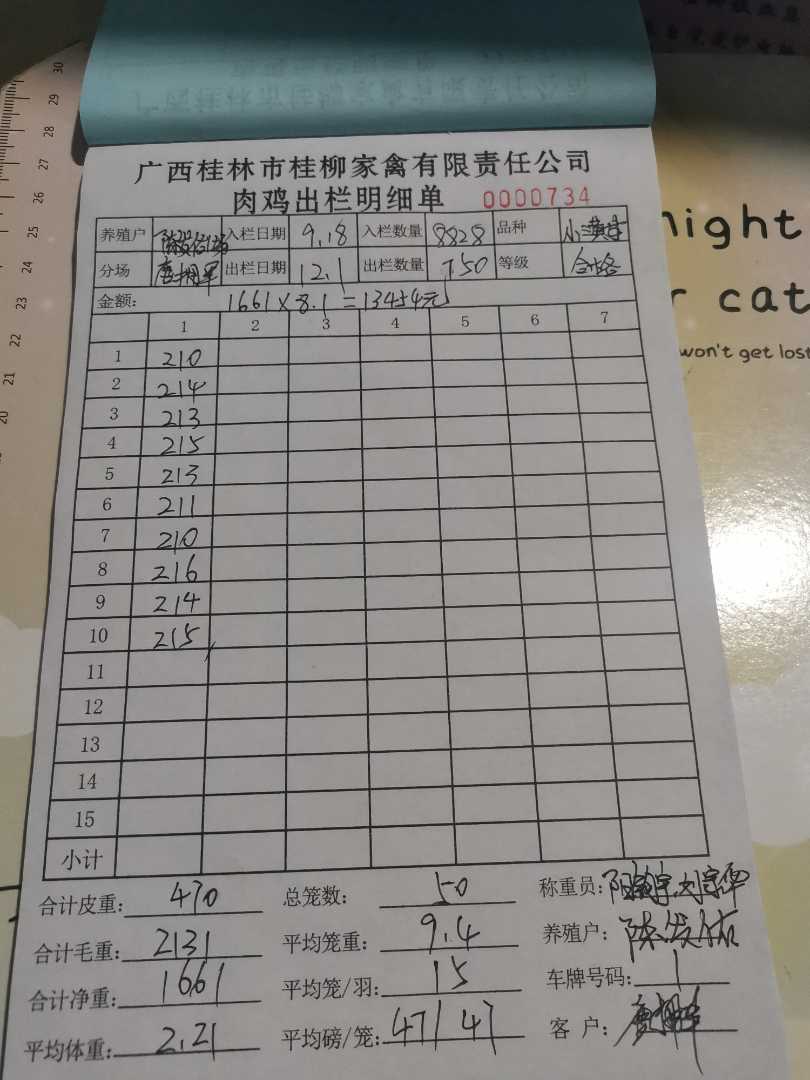 广西桂林市桂柳家禽有限责任公司
肉鸡出栏明细单 0000734
养殖户 入栏日期 9.18 入栏数量 8828 品种 小黄
分场 出栏日期 12.1 出栏数量 750 等级 合格
金额: 1661×8.1=13454元
1 2 3 4 5 6 7
1 210
2 214
3 213
4 215
5 213
6 211
7 210
8 216
9 214
10 215
11
12
13
14
15
小计
合计皮重: 470 总笼数: 50 称重员:
合计毛重: 2131 平均笼重: 9.4 养殖户: 陈发佑
合计净重: 1661 平均笼/羽: 15 车牌号码: 1
平均体重: 2.21 平均磅/笼: 47/47 客户:
night
r cat
won't get lost
30
29
28
27
26
25
24
23
22
21
20